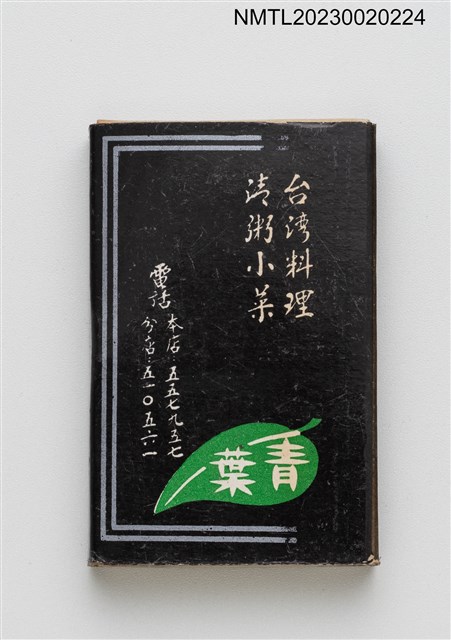 NMTL20230020224
台湾料理
清粥小菜
電話
本店：五五七九五七
分店：五一〇五六一
青葉